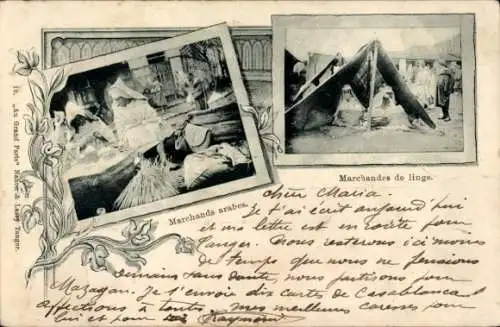 19. „Au Grand Paris" Nahon & Lasry Tanger.
Marchands arabes.
Marchandes de linge.
Chère Maria.
Je t'ai écrit aujourd'hui
et ma lettre est en route pour
Tanger. Nous resterons ici moins
de temps que nous ne pensions
demain sans doute, nous partirons pour
Mazagan. Je t'envoie dix cartes de Casablanca!
affections à toutes, mes meilleures caresses pour
lui et pour Raymond